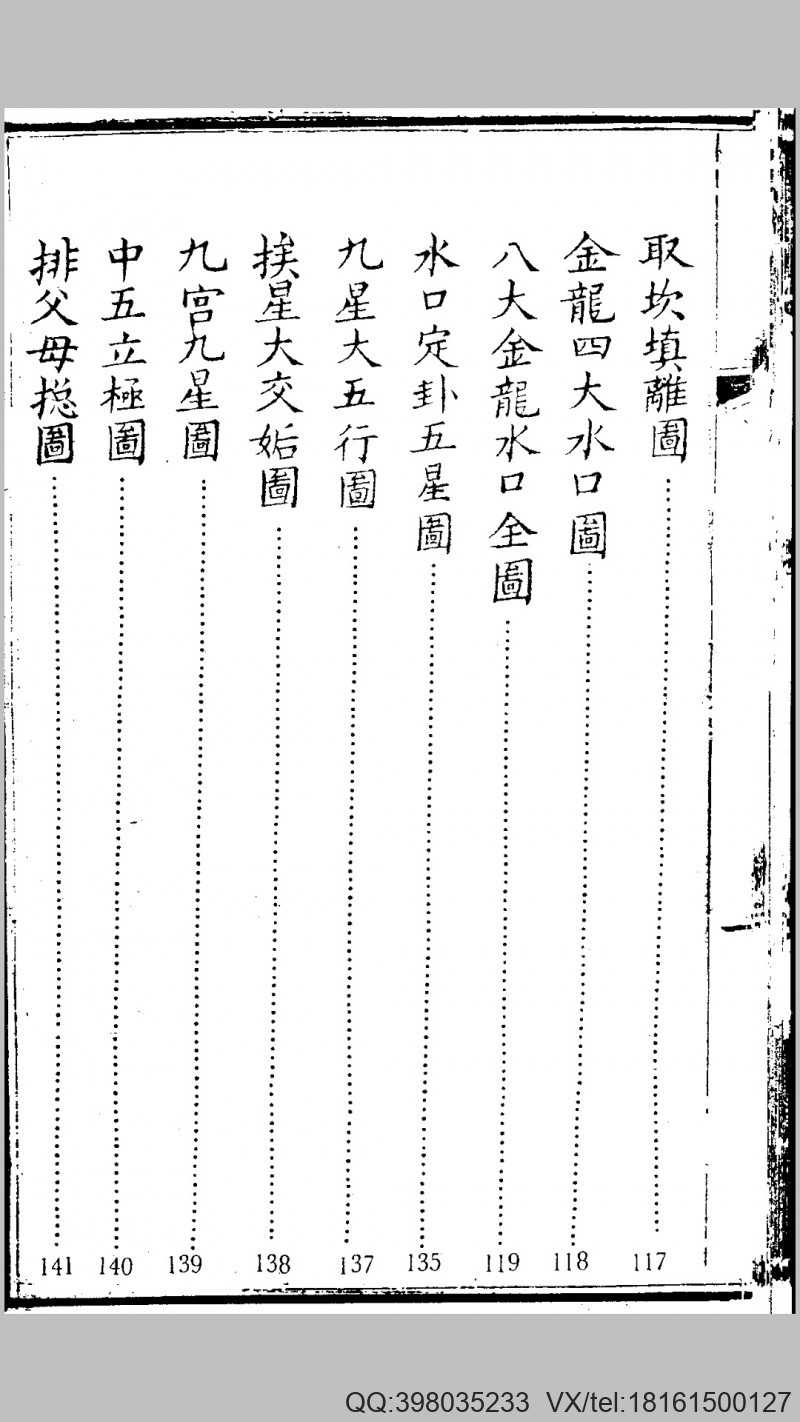 取坎填離圖……117
金龍四大水口圖……118
八大金龍水口全圖……119
水口定卦五星圖……135
九星大五行圖……137
挨星大交姤圖……138
九宮九星圖……139
中五立極圖……140
排父母捴圖……141
QQ:398035233 VX/tel:18161500127